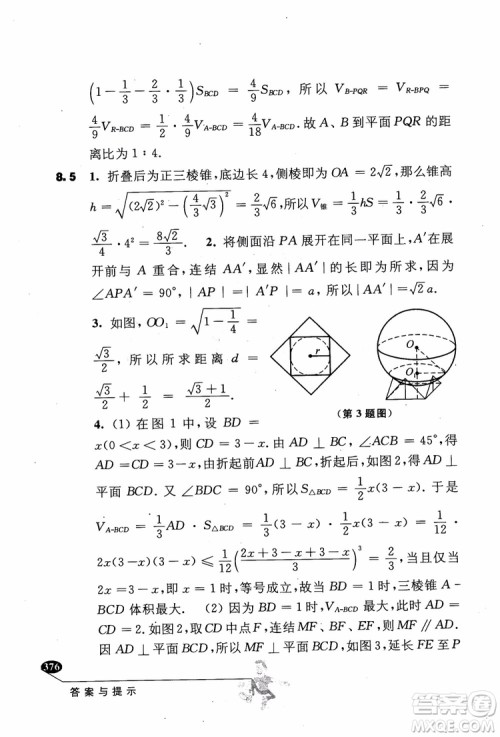 (1 - 1/3 - 2/3 · 1/3) S_{BCD} = 4/9 S_{BCD}，所以 V_{B-PQR} = V_{R-BPQ} =
4/9 V_{R-BCD} = 4/9 · 1/2 V_{A-BCD} = 4/18 V_{A-BCD}. 故 A、B 到平面 PQR 的距
离比为 1∶4.
8.5 1. 折叠后为正三棱锥,底边长 4,侧棱间为 OA = 2√2,那么锥高
h = √((2√2)² - (4√3/3)²) = 2√6/3. 所以 V锥 = 1/3 hS = 1/3 · 2√6/3 ·
√3/4 · 4² = 8√2/3. 2. 将侧面沿 PA 展开在同一平面上, A′在展
开前与 A 重合,连结 AA′,显然|AA′|的长即为所求,因为
∠APA′ = 90°, |AP| = |A′P| = a,所以|AA′| = √2 a.
3. 如图, OO₁ = √(1 - 1/4) =
√3/2, 所以所求距离 d =
√3/2 + 1/2 = (√3+1)/2.
r
O
O₁
(第 3 题图)
4. (1) 在图 1 中,设 BD =
x(0 < x < 3),则 CD = 3-x. 由 AD ⊥ BC, ∠ACB = 45°,得
AD = CD = 3-x. 由折起前 AD ⊥ BC,折起后, AD ⊥
平面 BCD. 又∠BDC = 90°,所以 S_{△BCD} = 1/2 x(3-x). 于是
V_{A-BCD} = 1/3 AD · S_{△BCD} = 1/3(3-x) · 1/2 x(3-x) = 1/12 ·
2x(3-x)(3-x) ≤ 1/12 [(2x+3-x+3-x)/3]³ = 2/3,当且仅
当 2x = 3-x,即 x = 1 时,等号成立,故当 BD = 1 时,三棱锥 A-
BCD 体积最大. (2) 因为 BD = 1 时,三棱锥体积最大,所以
CD = 2. 取 CD 中点 F,连结 MF、BF、EF,则 MF // AD.
因为 AD ⊥ 平面 BCD,所以 MF ⊥ 平面 BCD. 如图 3,延长 FE 至 P
376
答案与提示
作业帮
MXQE.COM